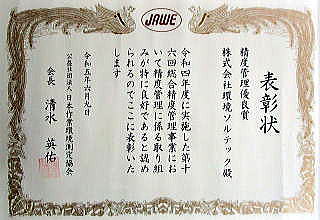 JAWE
表彰状
精度管理優良賞
株式会社環境ソルテック殿
令和四年度に実施した第十
六回総合精度管理事業にお
いて精度管理に係る取り組
みが特に良好であると認め
られるのでここに表彰いた
します
令和五年六月九日
公益社団法人日本作業環境測定協会
会長 清水英佑